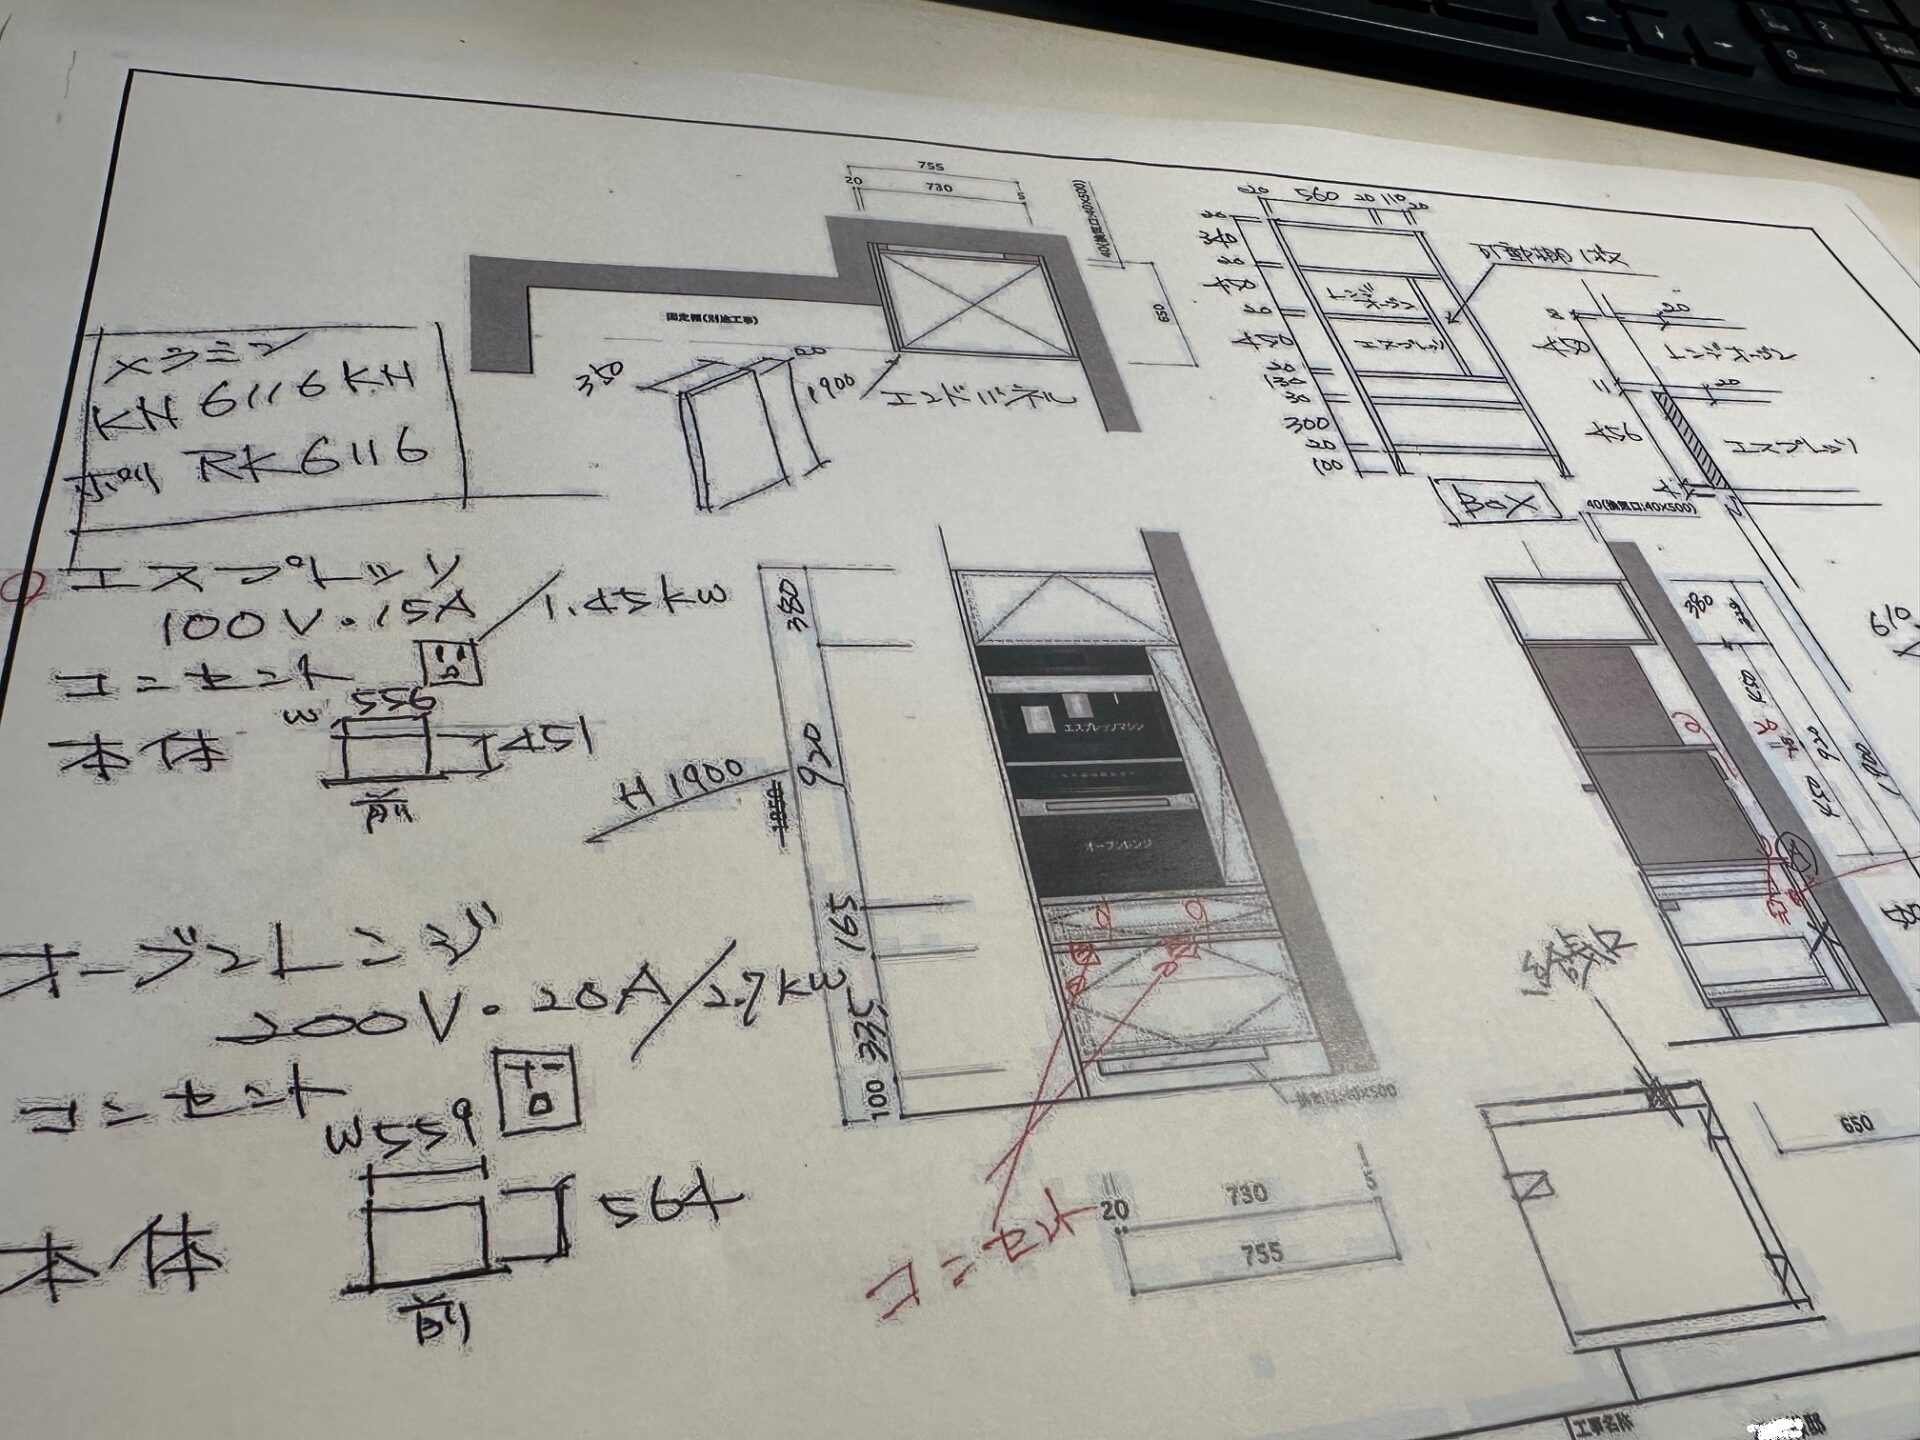 755
20 730 5
40(換気口:40X500)
650
固定棚(別途工事)
350 20
1900
エンドパネル
メラミン
KN 6116KN
ポリ RK6116
20 560 20 110 20
20
340
20
450
20
450
20
130
30
300
20
100
可動棚1枚
レンジ
オーブン
エスプレッソ
BOX
20
450
レンジオーブン
11
20
456
エスプレッソ
4
40(換気口:40X500)
エスプレッソ
100V・15A/1.45kW
コンセント
本体
W 556
451
前
オーブンレンジ
200V・20A/2.7kW
コンセント
本体
W559
564
前
H1900
380
920
165
335
100
エスプレッソマシン
オーブンレンジ
換気口:40X500
コンセント
20 730 5
755
380
450
20
920
450
1900
610
換気口
650
工事名称
邸